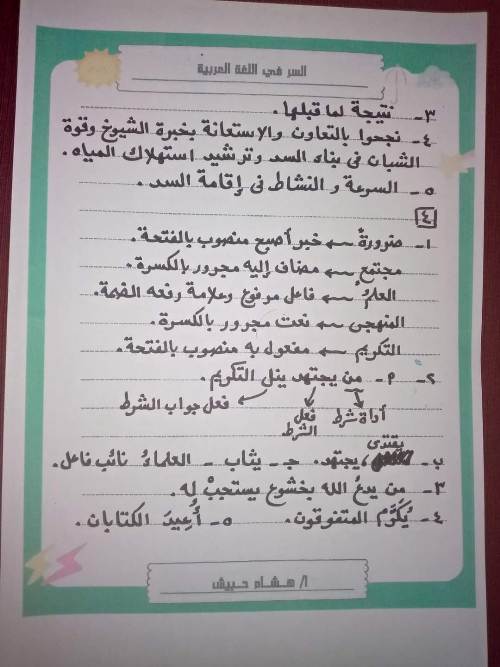 السر في اللغة العربية
٣- نتيجة لما قبلها.
٤- نجحوا بالتعاون والاستعانة بخبرة الشيوخ وقوة
الشبان فى بناء السد وترشيد استهلاك المياه.
٥- السرعة والنشاط فى إقامة السد.
٤
١- ضرورةً ← خبر أصبح منصوب بالفتحة.
مجتمع ← مضاف إليه مجرور بالكسرة.
العلمُ ← فاعل مرفوع وعلامة رفعه الضمة.
المنهجى ← نعت مجرور بالكسرة.
التكريم ← مفعول به منصوب بالفتحة.
٢- P- من يجتهد ينل التكريم.
أداة شرط فعل الشرط فعل جواب الشرط
يقتدى
ب- ، يجتهد. جـ- يثاب - العلماءُ نائب فاعل.
٣- من يدعُ الله بخشوع يستجبْ له.
٤- يُكَرَّم المتفوقون. ٥- أُعِيدَ الكتابان.
أ/ هشام حبيش